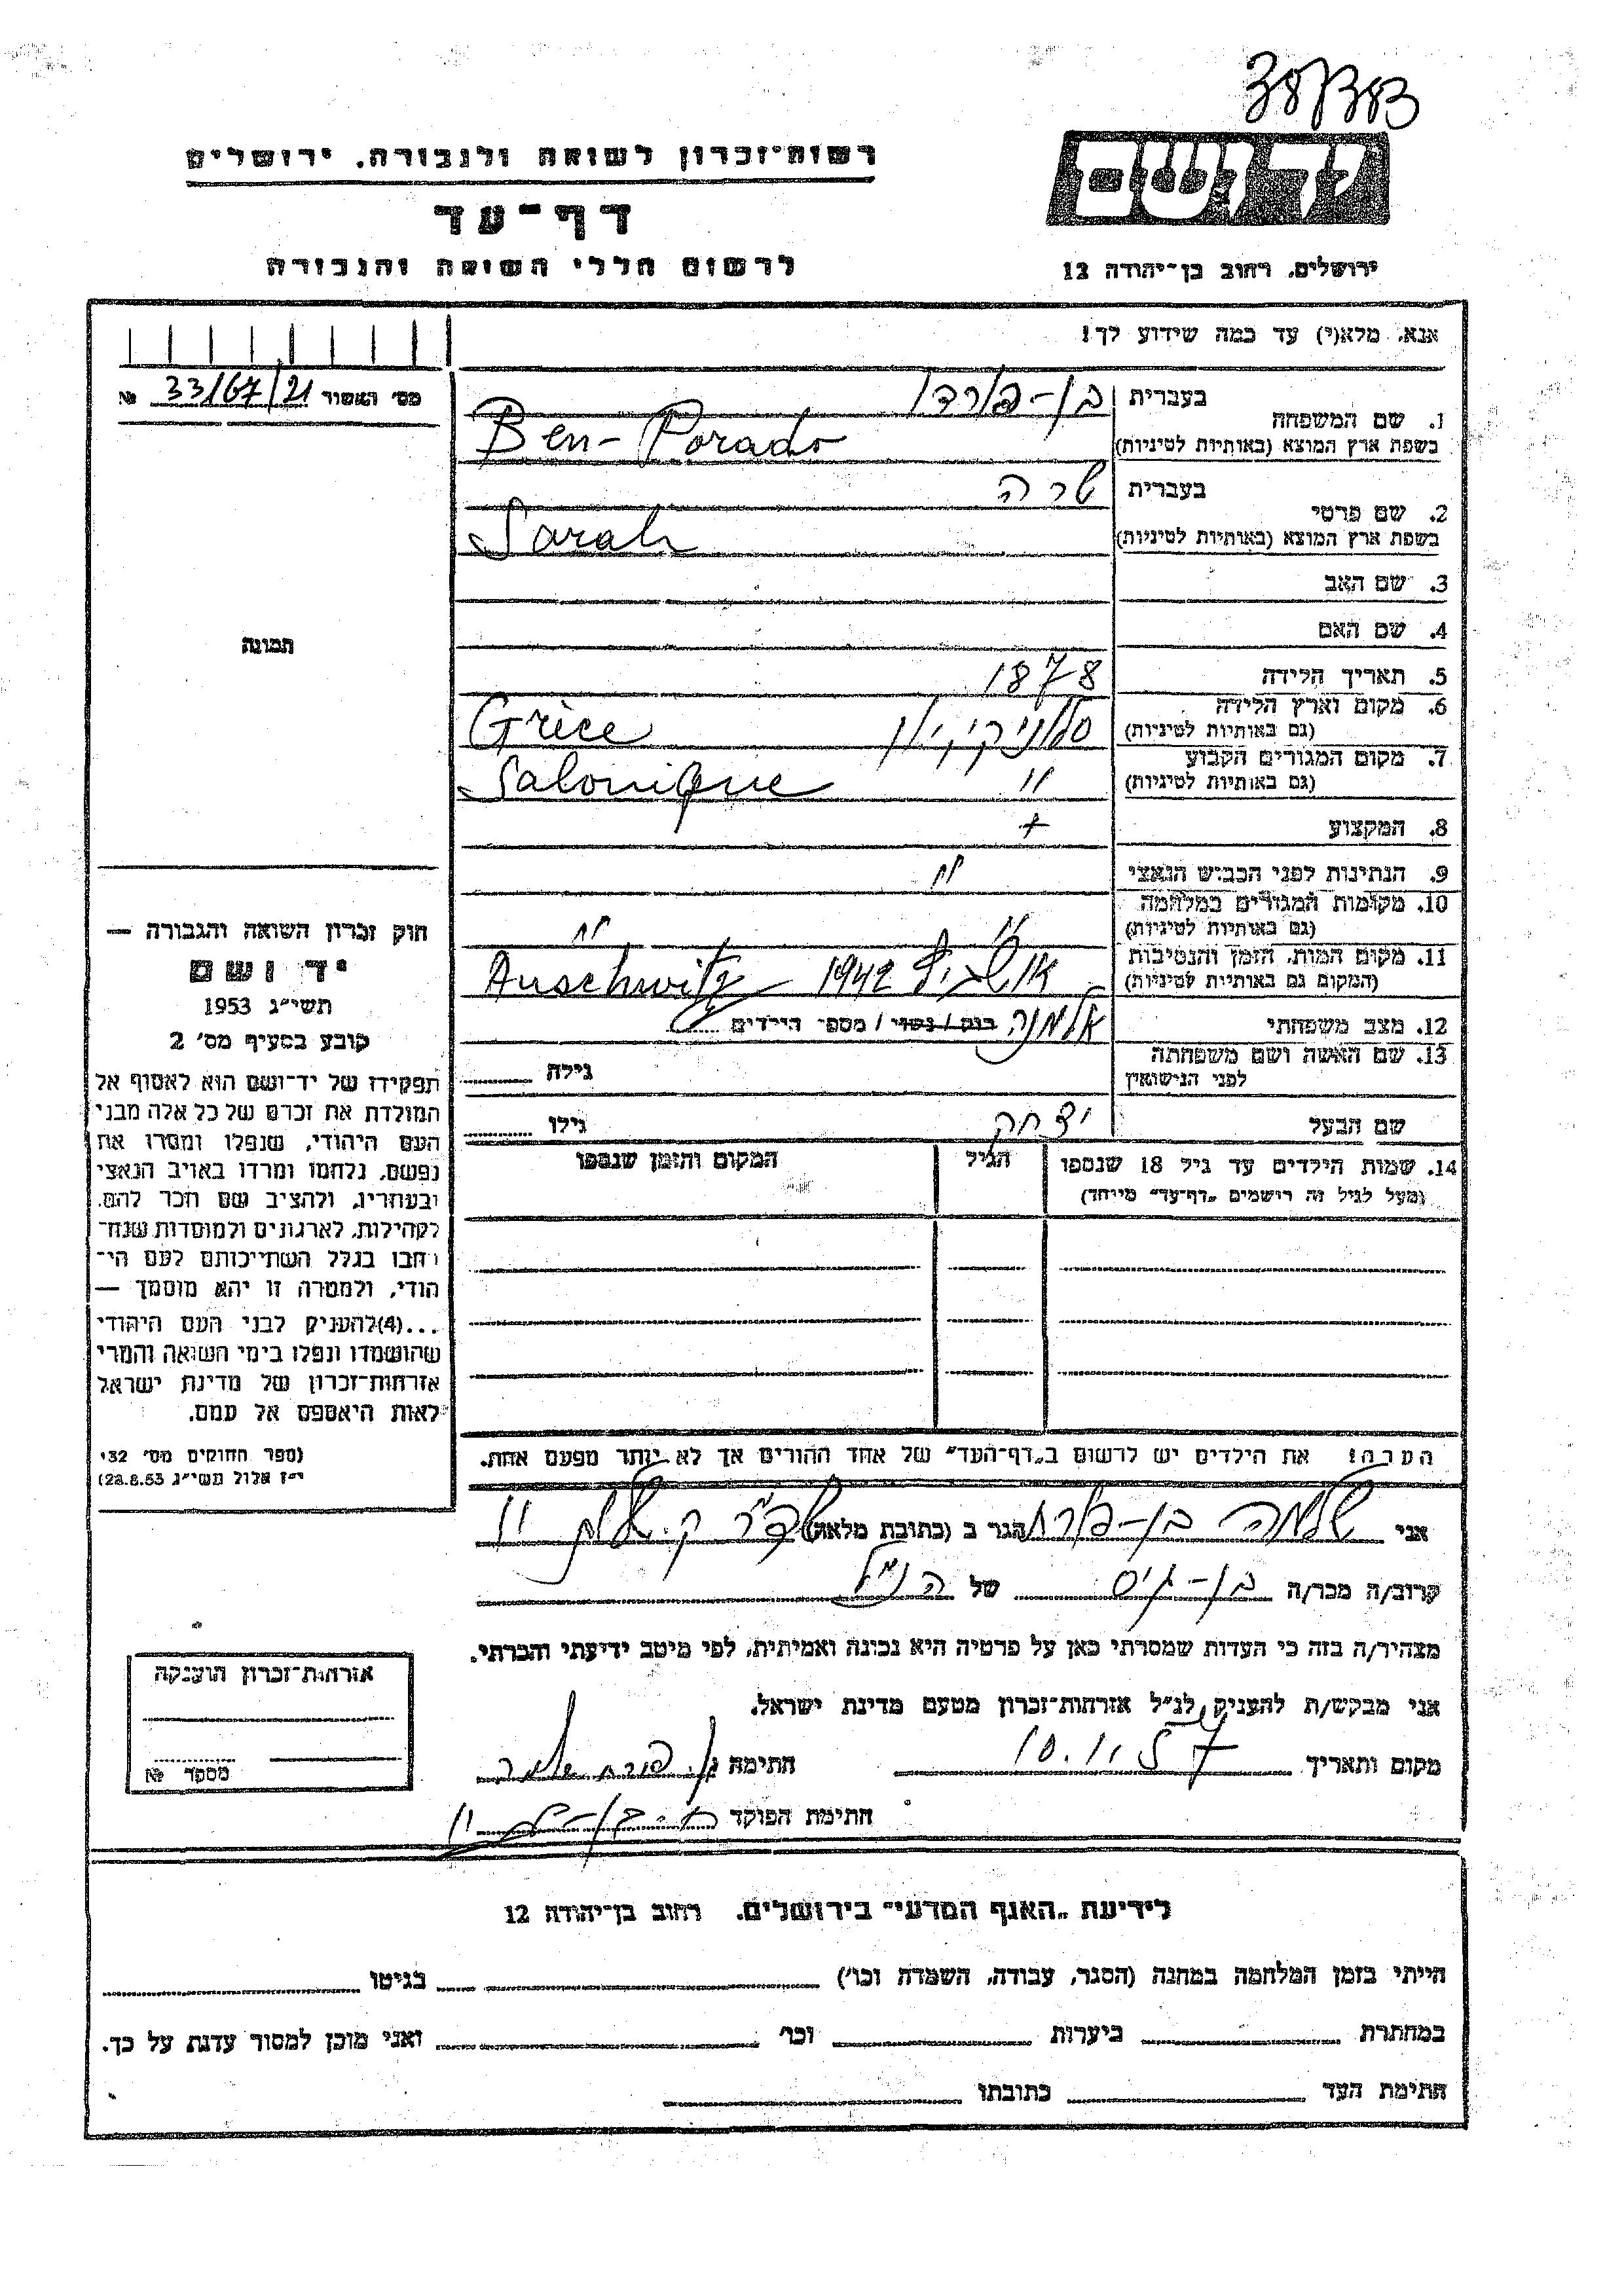 387383
רשות־זכרון לשואה ולגבורה, ירושלים
דף־עד
לרשום חללי השואה והגבורה
יד ושם
ירושלים, רחוב בן־יהודה 12
אנא, מלא(י) עד כמה שידוע לך!
מס׳ האשור 33/67/21 №
1. שם המשפחה
בעברית בן-פורדו
בשפת ארץ המוצא (באותיות לטיניות) Ben-Porado
2. שם פרטי
בעברית שרה
בשפת ארץ המוצא (באותיות לטיניות) Sarah
3. שם האב
4. שם האם
תמונה
5. תאריך הלידה 1878
6. מקום וארץ הלידה
(גם באותיות לטיניות) סלוניקי יון Grèce
7. מקום המגורים הקבוע
(גם באותיות לטיניות) " Salonique
8. המקצוע
9. הנתינות לפני הכבוש הנאצי
10. מקומות המגורים במלחמה
(גם באותיות לטיניות) " "
11. מקום המות, הזמן והנסיבות
(המקום גם באותיות לטיניות) אושביץ 1942 Auschwitz
12. מצב משפחתי אלמנה רווק / נשוי / מספר הילדים
13. שם האשה ושם משפחתה
לפני הנישואין
גילה
שם הבעל יצחק גילו
14. שמות הילדים עד גיל 18 שנספו
(מעל לגיל זה רישמים „דף־עד״ מייחד)
הגיל
המקום והזמן שנספו
חוק זכרון השואה והגבורה —
יד ושם
תשי״ג 1953
קובע בסעיף מס׳ 2
תפקידו של יד־ושם הוא לאסוף אל
המולדת את זכרם של כל אלה מבני
העם היהודי, שנפלו ומסרו את
נפשם, נלחמו ומרדו באויב הנאצי
ובעוזריו, ולהציב שם וזכר להם,
לקהילות, לארגונים ולמוסדות שנח־
רבו בגלל השתייכותם לעם הי־
הודי, ולמטרה זו יהא מוסמך —
...(4)להעניק לבני העם היהודי
שהושמדו ונפלו בימי השואה והמרי
אזרחות־זכרון של מדינת ישראל
לאות היאספם אל עמם.
(ספר החוקים מס׳ 132
י״ז אלול תשי״ג 28.8.53)
הערה! את הילדים יש לרשום ב„דף־העד״ של אחד ההורים אך לא יותר מפעם אחת.
אני שלמה בן-פורת הגר ב (כתובת מלאה)
קרוב/ה מכר/ה בן-גיס של הנ״ל
מצהיר/ה בזה כי העדות שמסרתי כאן על פרטיה היא נכונה ואמיתית, לפי מיטב ידיעתי והכרתי.
אני מבקש/ת להעניק לנ״ל אזרחות־זכרון מטעם מדינת ישראל.
מקום ותאריך 10.11.57 חתימה בן פורת שלמה
חתימת הפוקד
אזרחות־זכרון הוענקה
מספר №
לידיעת „האגף המדעי״ בירושלים, רחוב בן־יהודה 12
הייתי בזמן המלחמה במחנה (הסגר, עבודה, השמדה וכו׳) בגיטו
במחתרת ביערות וכו׳ ואני מוכן למסור עדות על כך.
חתימת העד כתובתו